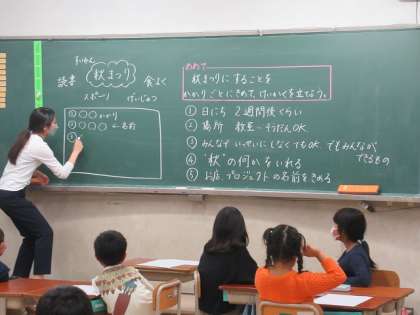 さいれん
読書 秋まつり 食よく
スポーツ げいじゅつ
① ○○○ かかり
② ○○○ ←名前
③
めあて
秋まつりにすることを
かかりごとにきめて、けいかくを立てよう。
① 日にち 2週間後くらい
② 場所 教室
③ みんなでいっせいにしなくてもOK でもみんなが
できるもの
④ "秋"の何かをいれる
⑤ お店、プロジェクトの名前をきめる